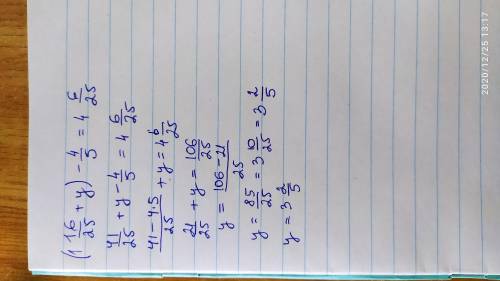 (1 16/25 + y) - 4/5 = 4 6/25
41/25 + y - 4/5 = 4 6/25
41-4·5/25 + y = 4 6/25
21/25 + y = 106/25
y = 106-21/25
y = 85/25 = 3 10/25 = 3 2/5
y = 3 2/5
2020/12/25 13:17